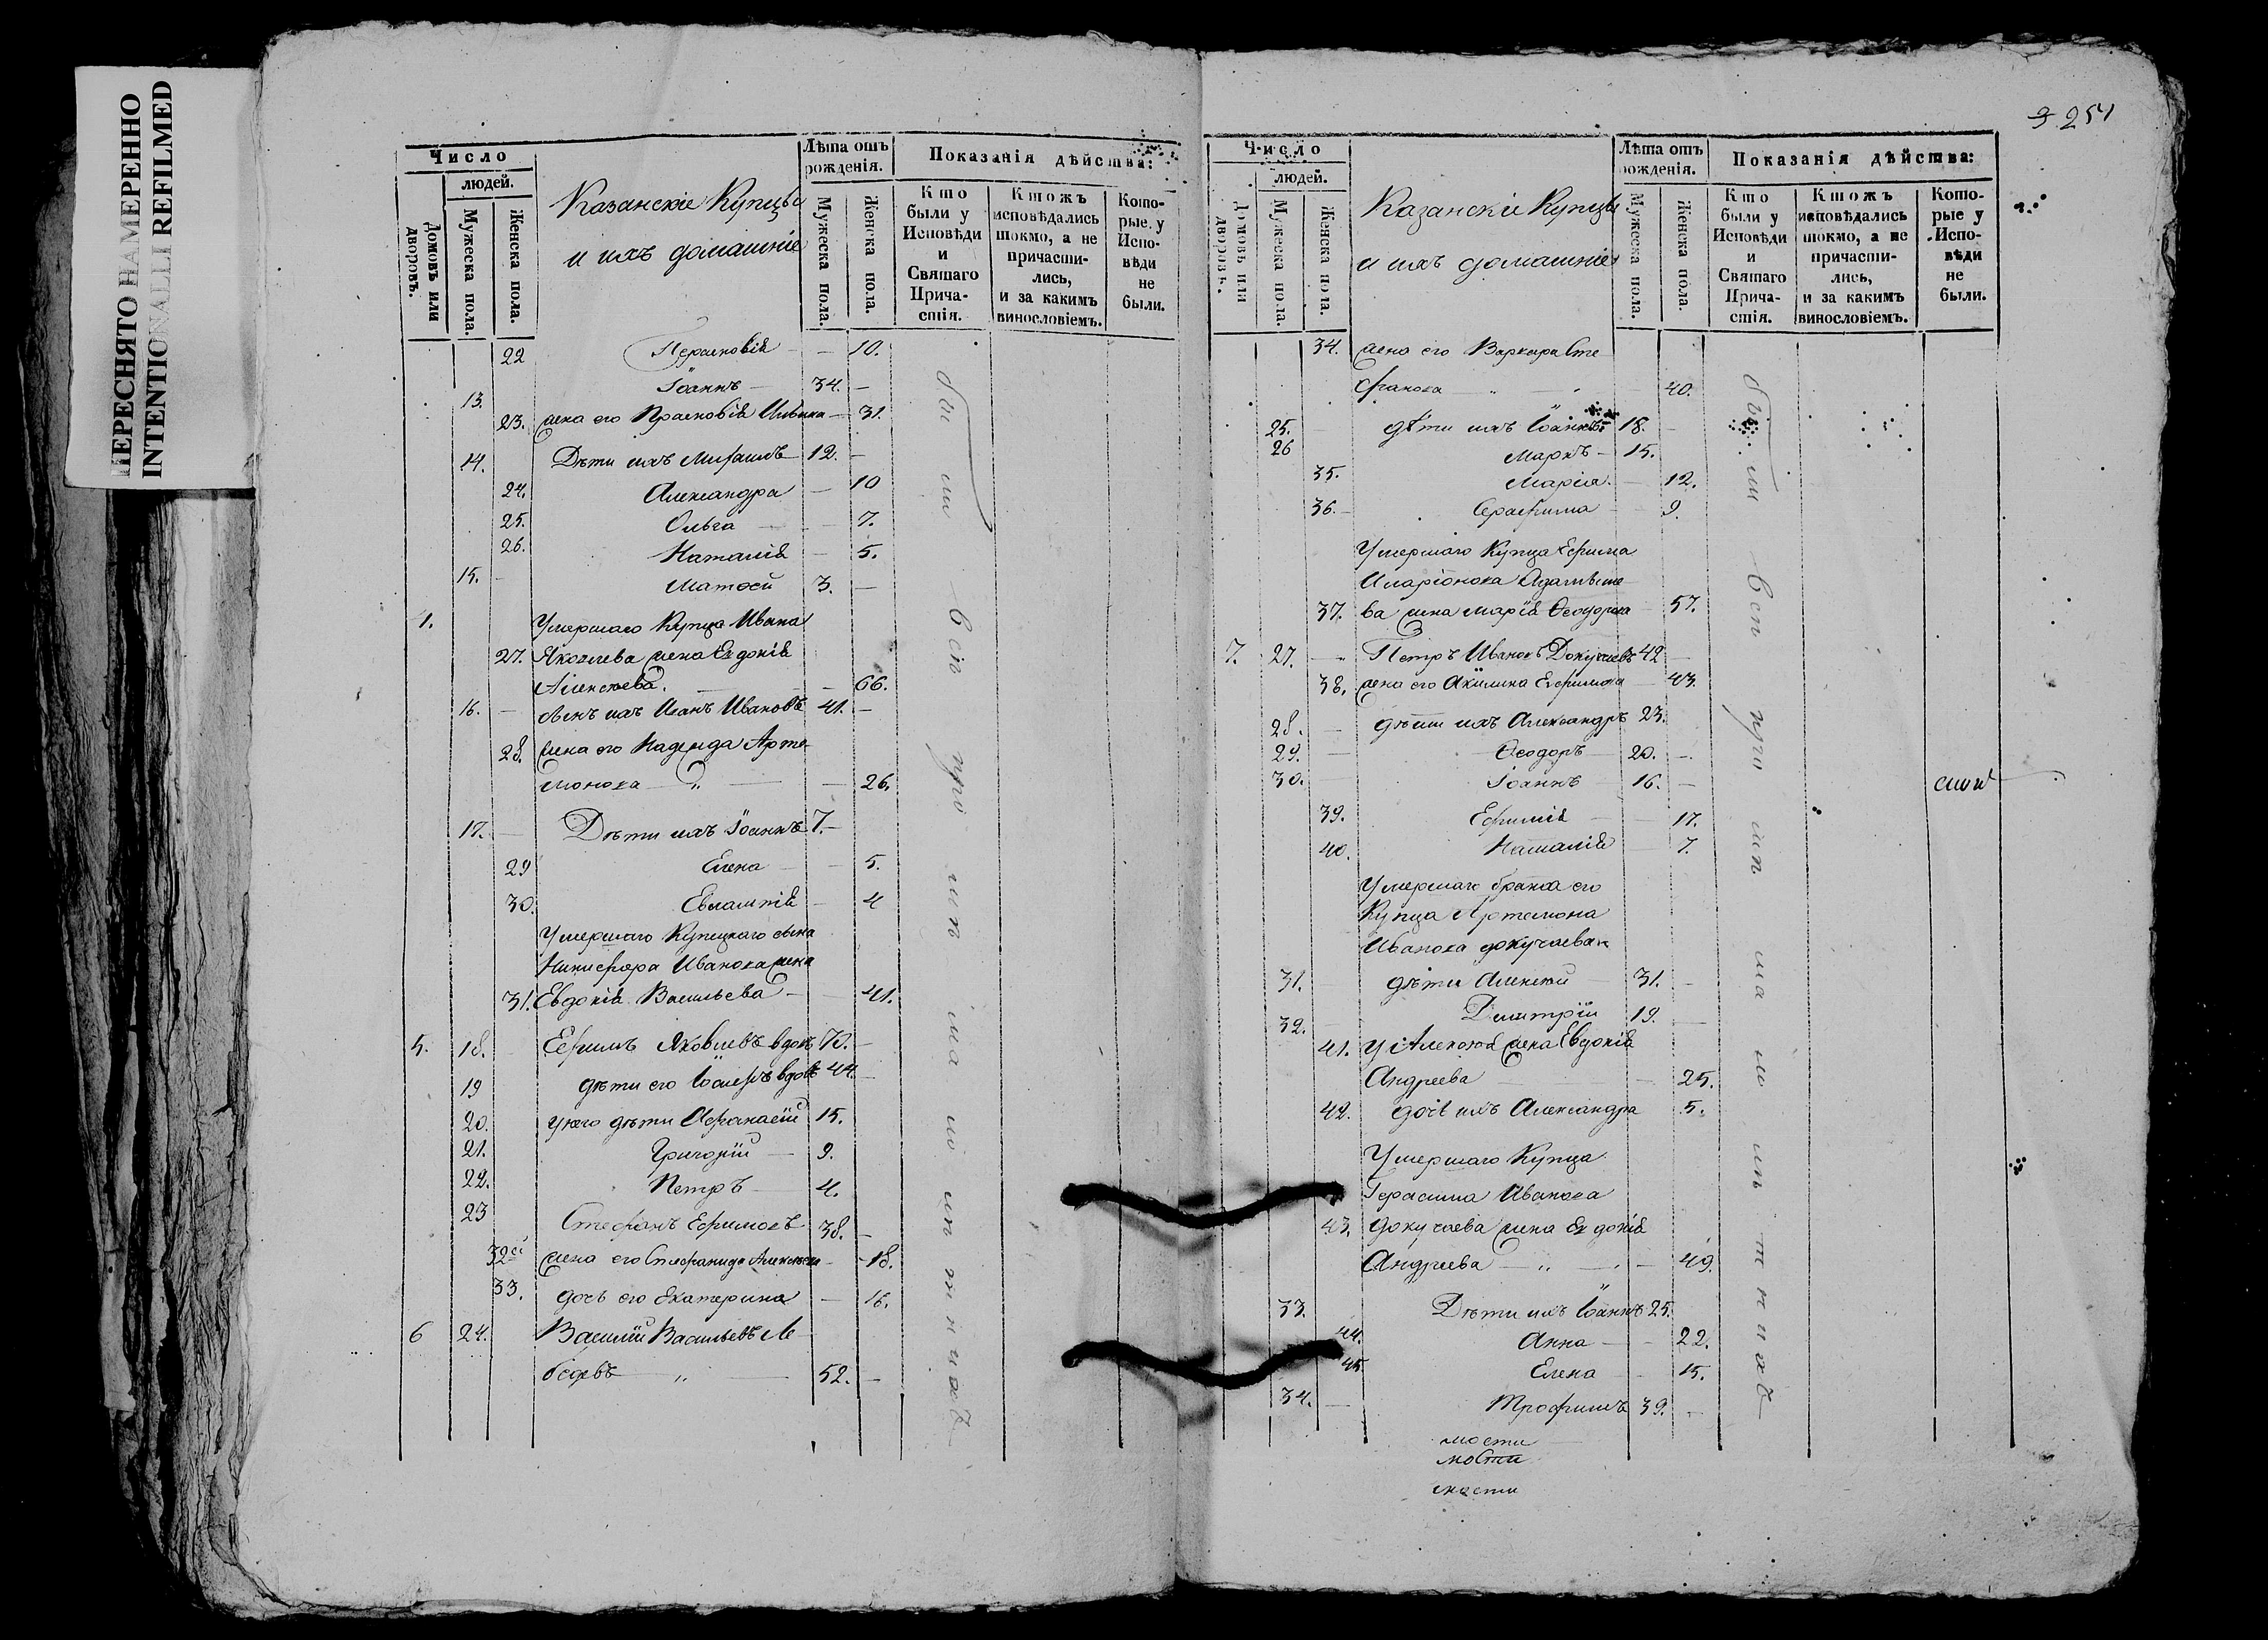 ПЕРЕСНЯТО НАМЕРЕННО
INTENTIONALLI REFILMED
Число
людей.
Домовъ или дворовъ.
Мужеска пола.
Женска пола.
Казанскіе Купцы
и ихъ домашніе
Лѣта отъ рожденія.
Мужеска пола.
Женска пола.
Показанія дѣйства:
Кто были у Исповѣди и Святаго Прича-стія.
Ктожъ исповѣдались токмо, а не причасти-лись, и за какимъ винословіемъ.
Кото-рые у Испо-вѣди не были.
22 Парасковія — 10.
13. Іоаннъ — 34. —
23. жена его Прасковія — 31.
14. Дѣти ихъ Михаилъ 12. —
24. Александра — 10
25. Ольга — 7.
26. Наталія — 5.
15. — Матѳей 3. —
4. Умершаго Купца Ивана
27. Яковлева жена Евдокія
Алексѣева. — 66.
16. — сынъ ихъ Иванъ Ивановъ 41. —
28. жена его Надежда Арте-
монова — „ — 26.
17. — Дѣти ихъ Іоаннъ 7. —
29 Елена — 5.
30. Евлампія — 4
Умершаго Купецкаго сына
Никифора Иванова жена
31. Евдокія Васильева — 41.
5. 18. Ефимъ Яковлевъ вдовъ 70. —
19 дѣти его Іосифъ вдовъ 44. —
20. у него дѣти Афанасій 15.
21. Григорій — 9.
22. Петръ — 4.
23 Стефанъ Ефимовъ 38. —
32 жена его Стефанида — 18.
33. дочь его Екатерина — 16.
6 24. Василій Васильевъ Ле-
бедевъ „ — 52. —
бы ли всѣ при
254
Число
людей.
Домовъ или дворовъ.
Мужеска пола.
Женска пола.
Казанскіе Купцы
и ихъ домашніе
Лѣта отъ рожденія.
Мужеска пола.
Женска пола.
Показанія дѣйства:
Кто были у Исповѣди и Святаго Прича-стія.
Ктожъ исповѣдались токмо, а не причасти-лись, и за какимъ винословіемъ.
Кото-рые у Испо-вѣди не были.
34. жена его Варвара Сте-
фанова — 40.
25. дѣти ихъ Іоаннъ 18. —
26 Маркъ — 15.
35. Марія. — 12.
36. — Серафима — 9.
Умершаго Купца Ефима
Иларіонова
37. ва жена Марія Ѳеодорова 57.
7. 27. — Петръ Ивановъ Докучаевъ 42 —
38. жена его Акилина Ефимова — 43.
28. — дѣти ихъ Александръ 23.
29. — Ѳеодоръ — 20. —
30. Іоаннъ — 16. —
39. Ефимія — 17.
40. Наталія 7.
Умершаго брата его
Купца Артемона
Иванова Докучаева
31. дѣти Алексѣй 31. —
32. Димитрій 19. —
41. у Алексѣя жена Евдокія
Андреева — 25.
42. дочь ихъ Александра 5.
Умершаго Купца
Герасима Иванова
43. Докучаева жена Евдокія
Андреева — „ — 49.
33. Дѣти ихъ Іоаннъ 25.
44. Анна — 22.
45. Елена — 15.
34. — Трофимъ 39. —
бы ли всѣ при